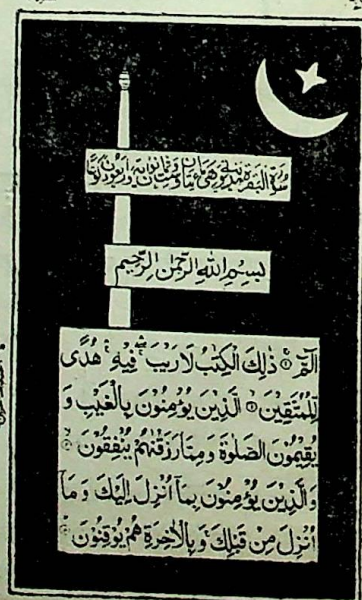 سُوْرَةُ الْبَقَرَةِ مَدَنِيَّةٌ وَّهِىَ مِائَتَانِ وَسِتٌّ وَّثَمَانُوْنَ اٰيَةً وَّاَرْبَعُوْنَ رُكُوْعًا
بِسْمِ اللّٰهِ الرَّحْمٰنِ الرَّحِيْمِ
الٓمّٓ ۚ ذٰلِكَ الْكِتٰبُ لَا رَيْبَ ۛ فِيْهِ ۛ هُدًى
لِّلْمُتَّقِيْنَ ۙ الَّذِيْنَ يُؤْمِنُوْنَ بِالْغَيْبِ وَ
يُقِيْمُوْنَ الصَّلٰوةَ وَمِمَّا رَزَقْنٰهُمْ يُنْفِقُوْنَ ۙ
وَالَّذِيْنَ يُؤْمِنُوْنَ بِمَآ اُنْزِلَ اِلَيْكَ وَمَآ
اُنْزِلَ مِنْ قَبْلِكَ ۚ وَبِالْاٰخِرَةِ هُمْ يُوْقِنُوْنَ ؕ